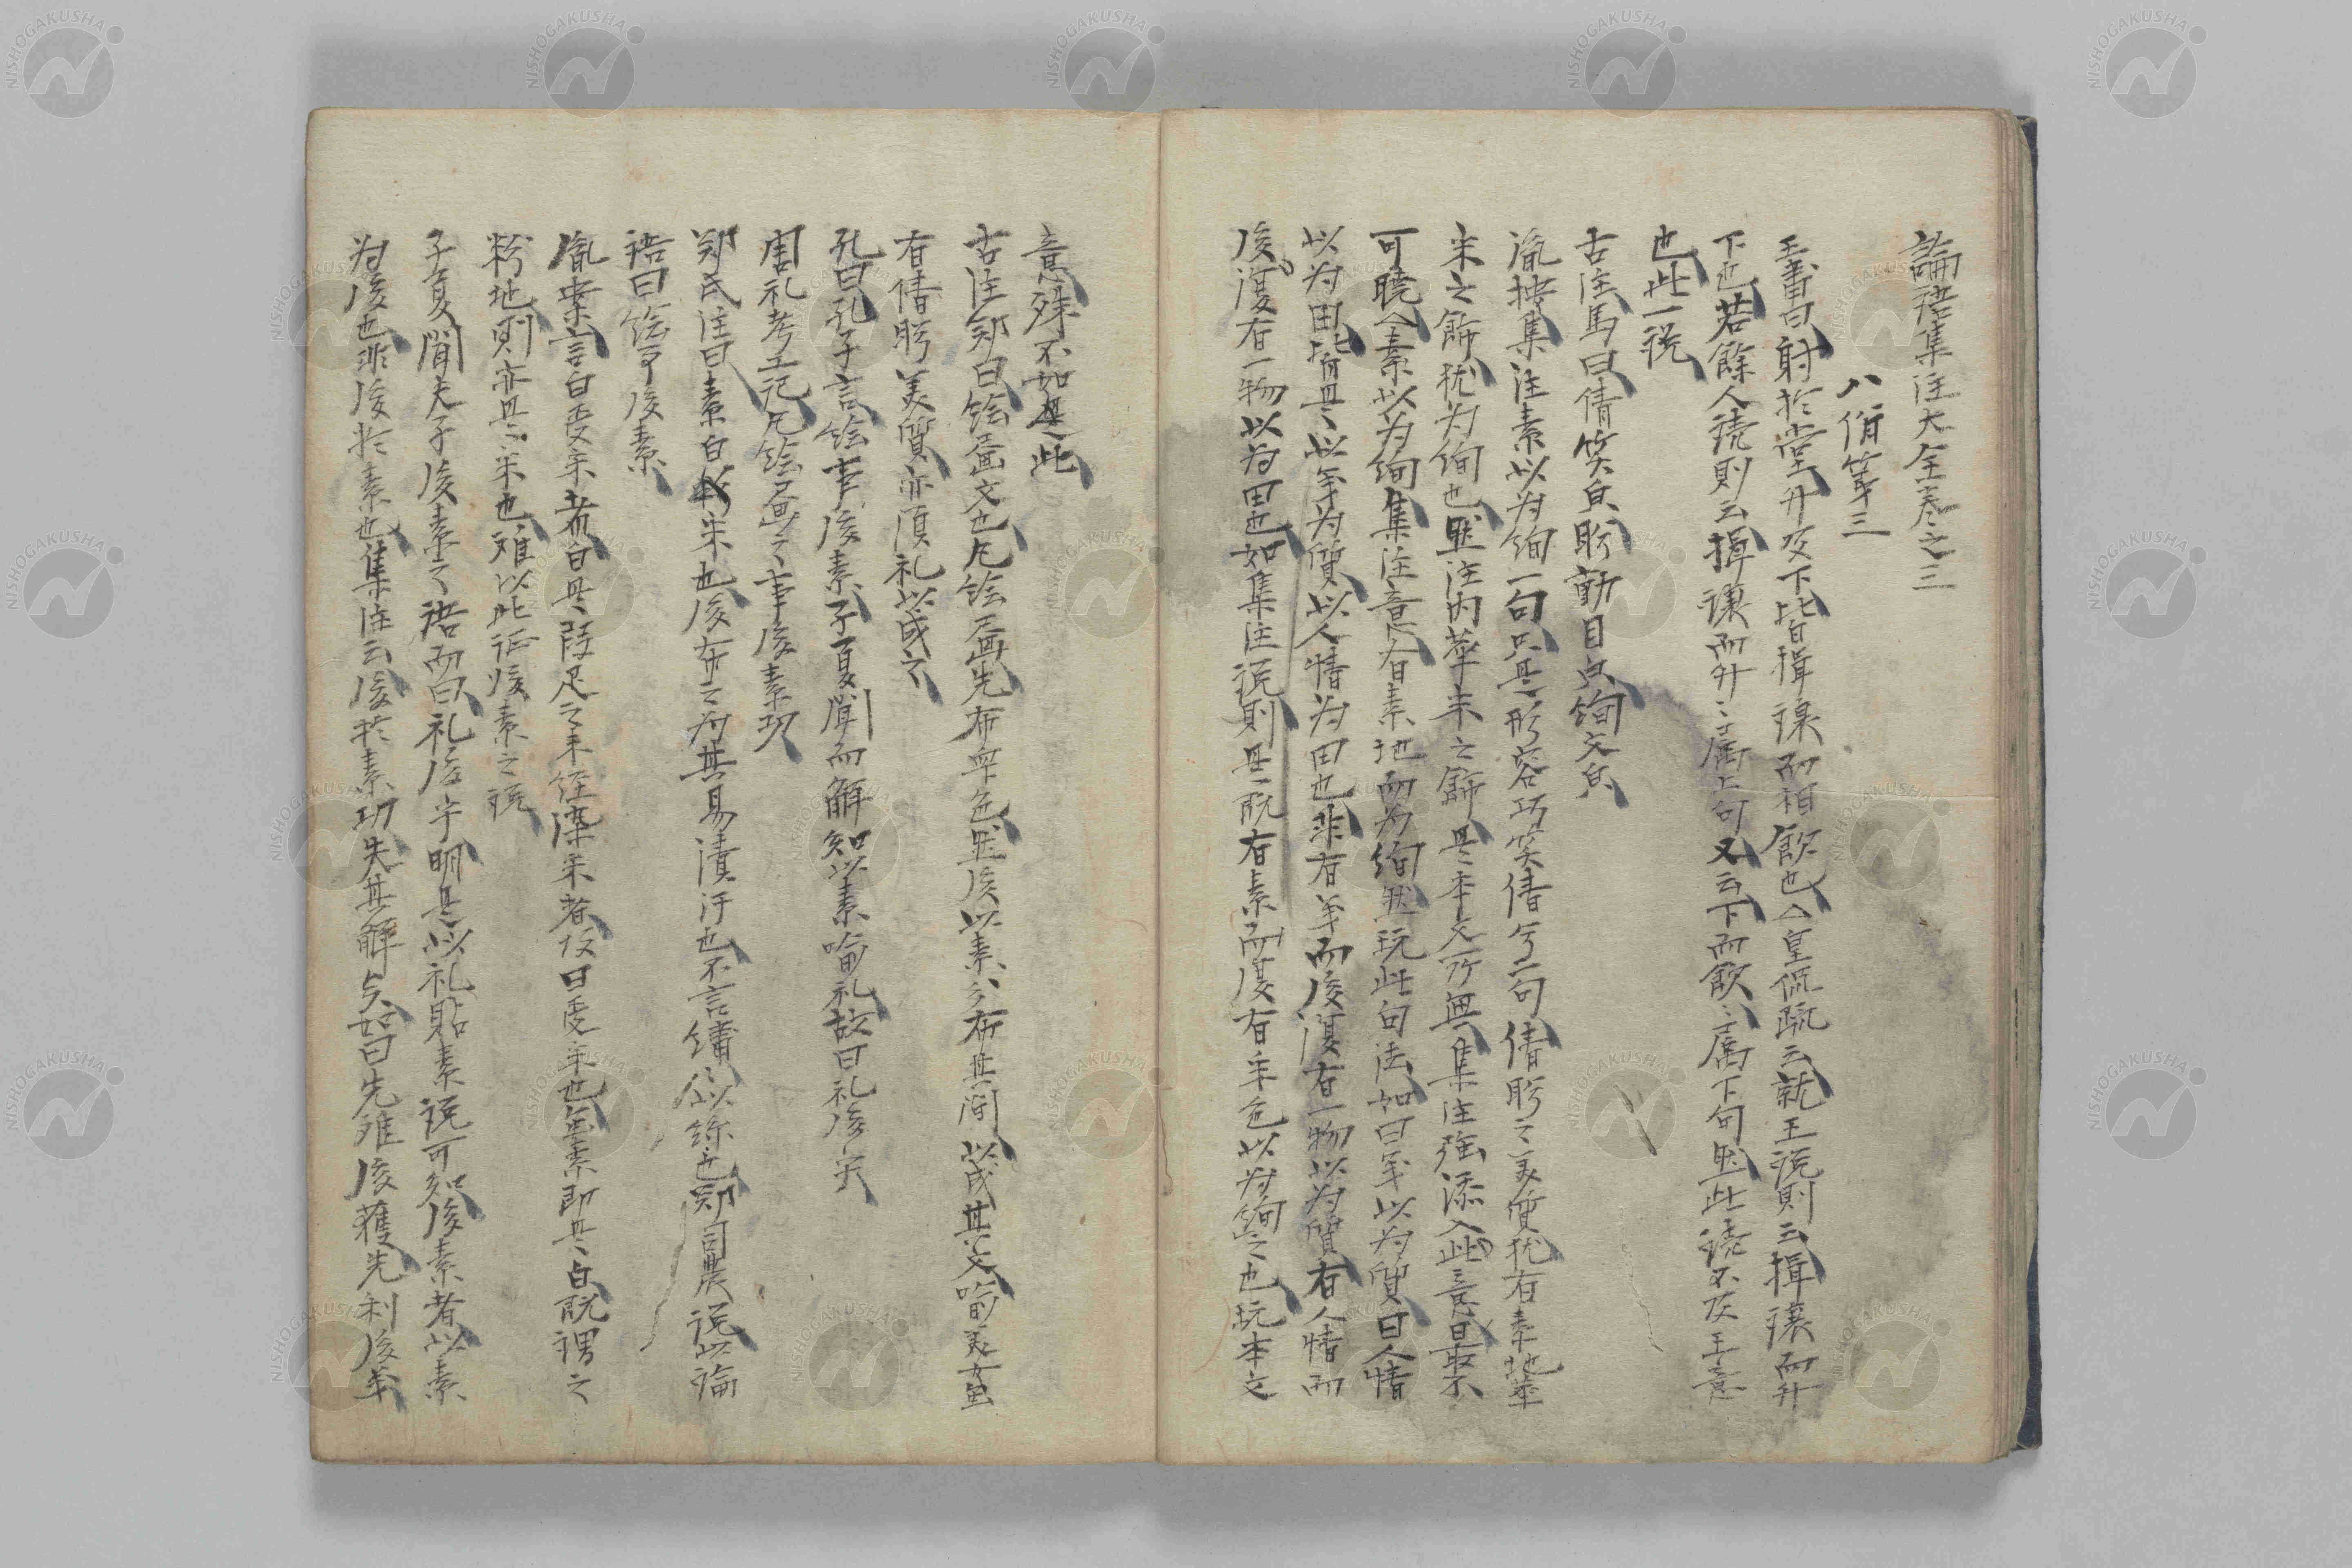 論語集注大全卷之三
八佾第三
王書曰射於堂升及下皆揖讓而相飲也△皇侃疏云就王說則云揖讓而升
下也若餘人讀則云揖讓而升ミ属上句又云下而飲ミ属下句然此讀不及王意
也此一説
古注馬曰倩笑皃盻動目皃絢文皃
胤按集注素以為絢一句只是形容巧笑倩兮一句倩盻之美質犹有素地華
采之餙犹為絢也然注内華采之餙是本文所無集注強添入此意最不
可曉△素以為絢集注意有素地而為絢然玩此句法如曰軍以為質曰人情
以為田皆是以軍為質以人情為田也非有軍而後復有一物以為質有人情而
後復有一物以為田也如集注説則是既有素而復有采色以為絢之也玩本文
意殊不如此
古注鄭曰絵畫文也凡絵畫先布衆色然後以素分布其間以成其文喩美女虽
有倩盻美質亦須礼以成之
孔曰孔子言絵事後素子夏聞而解知以素喩礼故曰礼後乎
周礼考工記凡絵畫之事後素功
鄭氏注曰素白采也後布之為其易漬汙也不言繡ミ以絲也鄭司農説以論
語曰絵事後素
胤案言白受采者白是陸足之采絰染采者故曰受采也至素即是白既謂之
粉地則亦是采也難以此征後素之説
子夏聞夫子後素之語而曰礼後乎明是以礼貼素説可知後素者以素
為後也非後於素也集注云後於素功失其解矣如曰先难後獲先利後羊